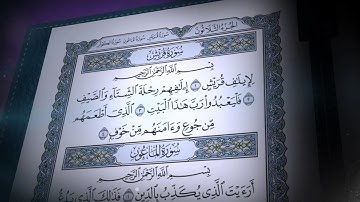 الجزء الثلاثون
سورة قريش
بِسْمِ ٱللَّهِ ٱلرَّحْمَٰنِ ٱلرَّحِيمِ
لِإِيلَٰفِ قُرَيْشٍ ۝١ إِۦلَٰفِهِمْ رِحْلَةَ ٱلشِّتَآءِ وَٱلصَّيْفِ
۝٢ فَلْيَعْبُدُوا۟ رَبَّ هَٰذَا ٱلْبَيْتِ ۝٣ ٱلَّذِىٓ أَطْعَمَهُم
مِّن جُوعٍ وَءَامَنَهُم مِّنْ خَوْفٍۭ ۝٤
سورة الماعون
بِسْمِ ٱللَّهِ ٱلرَّحْمَٰنِ ٱلرَّحِيمِ
أَرَءَيْتَ ٱلَّذِى يُكَذِّبُ بِٱلدِّينِ ۝١ فَذَٰلِكَ ٱلَّذِى يَدُعُّ